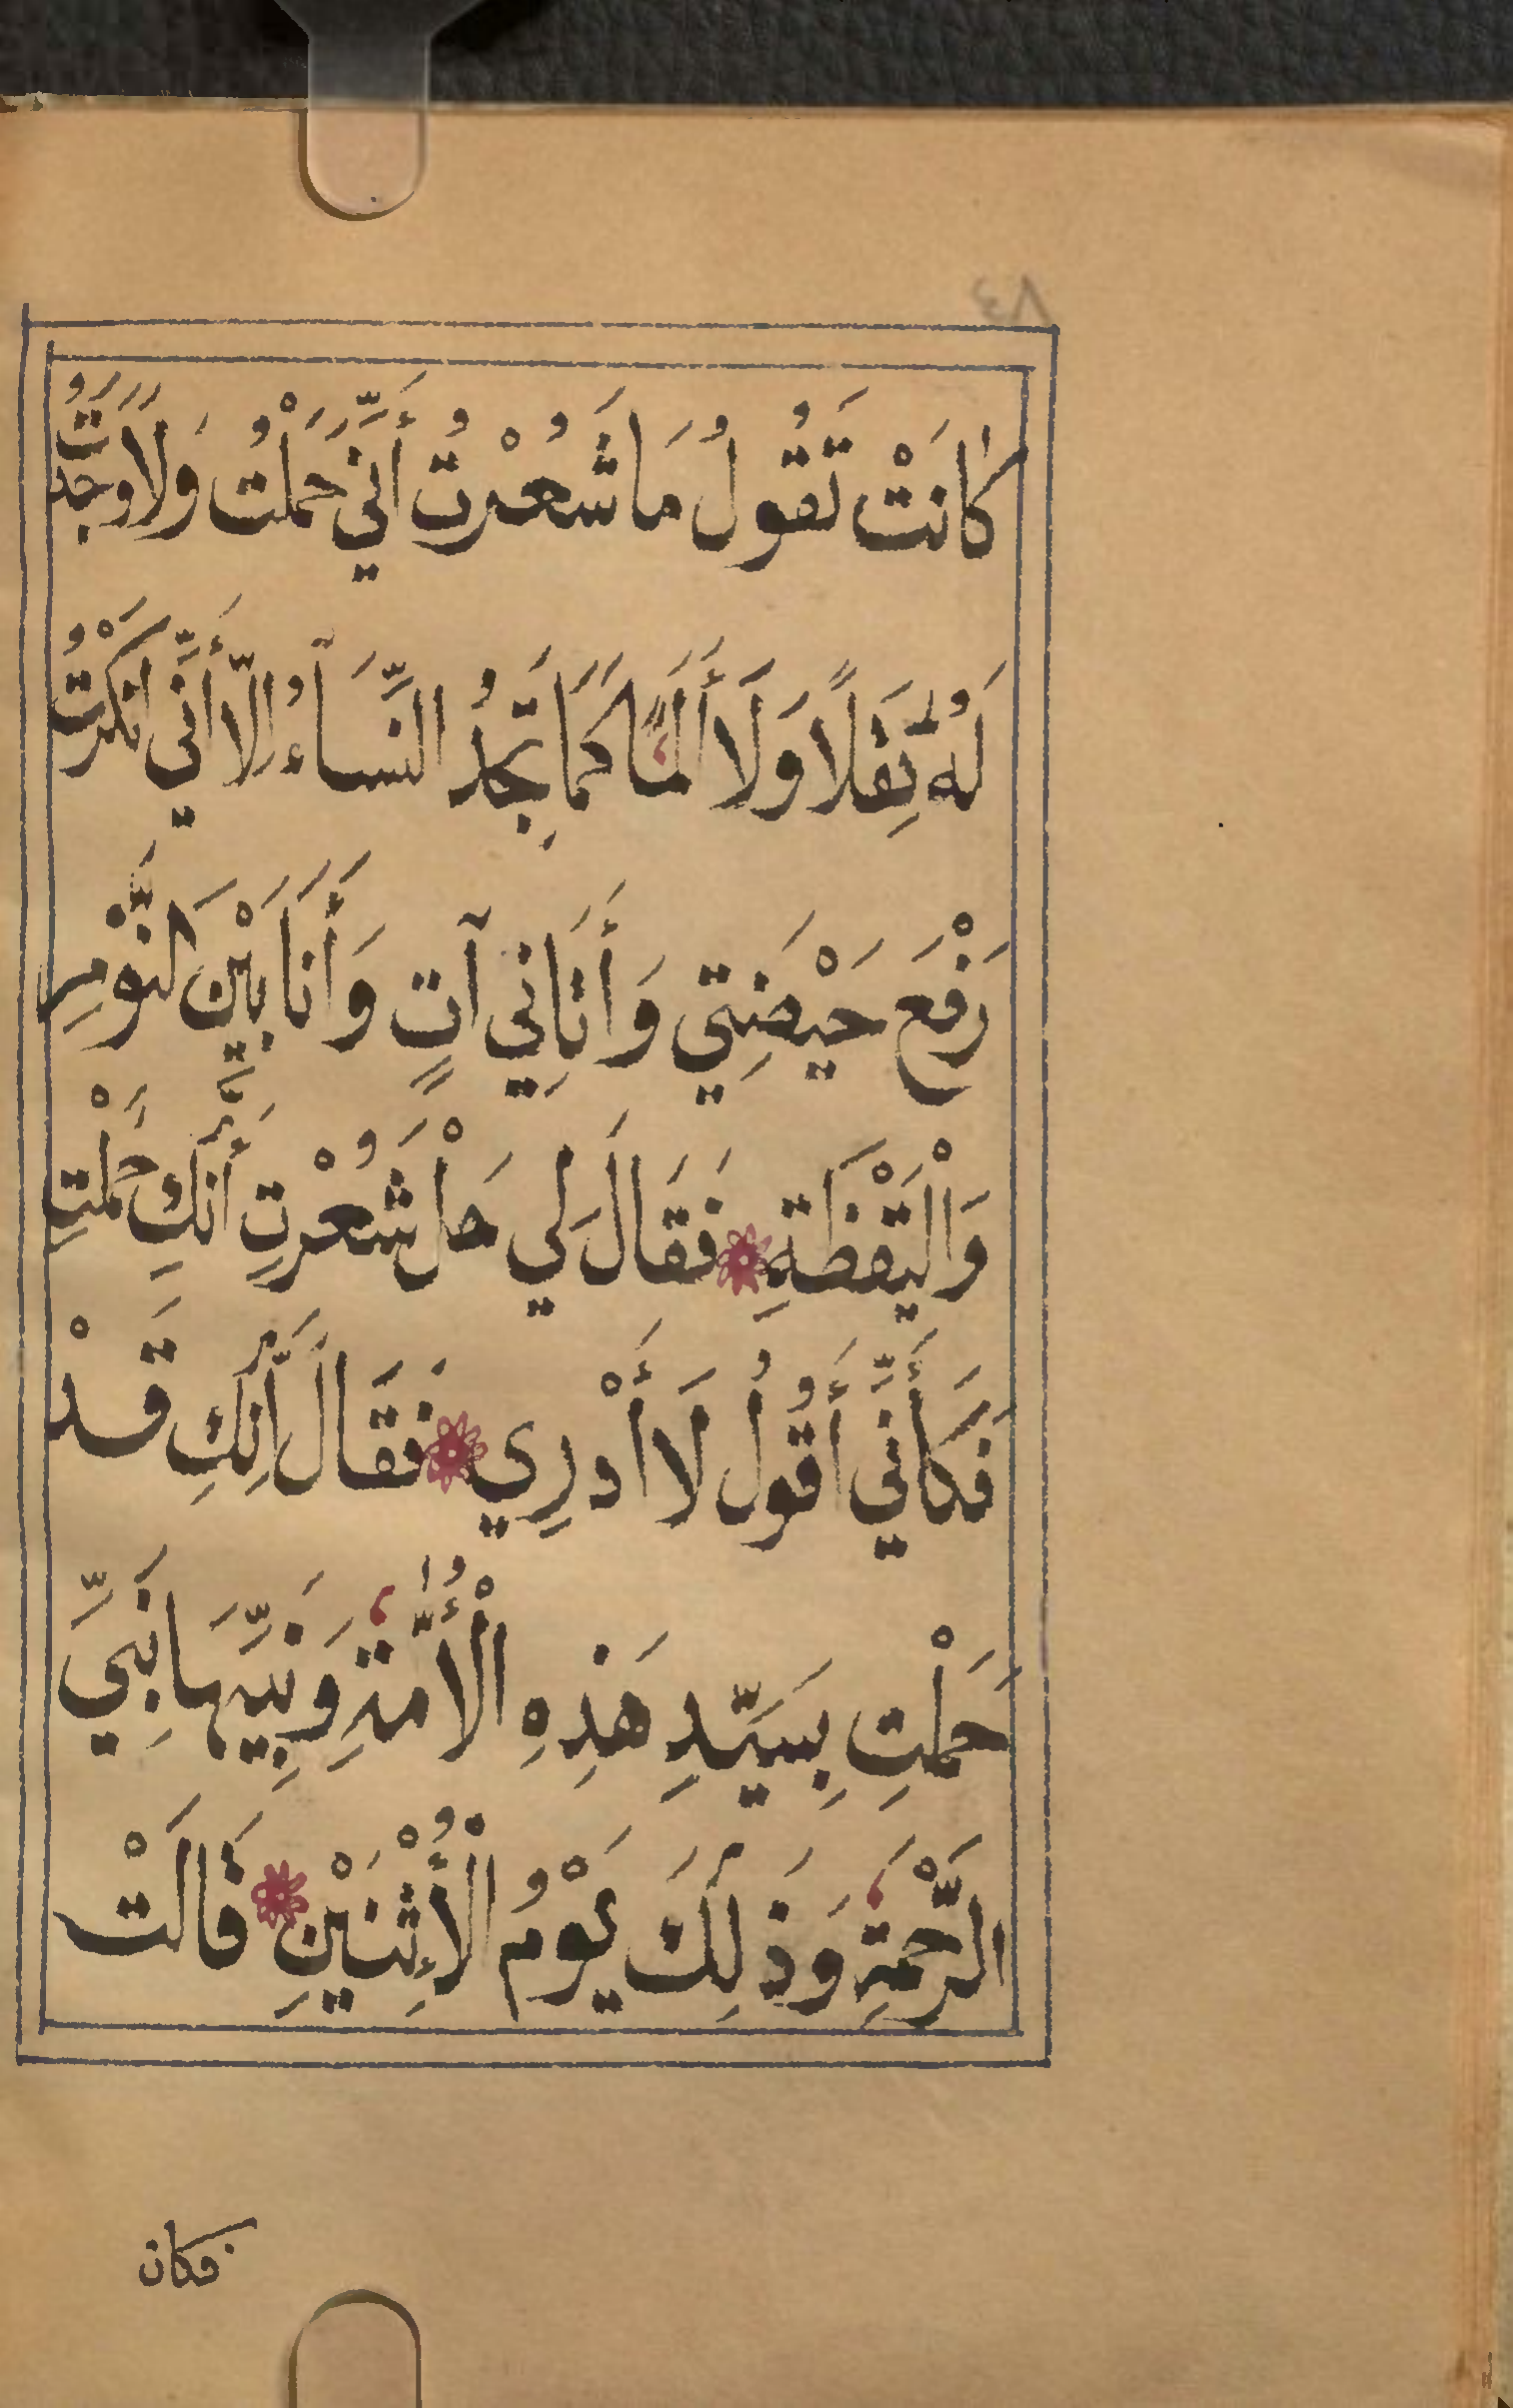 كَانَتْ تَقُولُ مَا شَعُرْتُ أَنِّي حَمَلْتُ وَلَا وَجَدْتُ
لَهُ ثِقَلًا وَلَا أَلَمًا كَمَا تَجِدُ النِّسَآءُ إِلَّا أَنِّي أَنْكَرْتُ
رَفْعَ حَيْضَتِي وَأَتَانِي آتٍ وَأَنَا بَيْنَ النَّوْمِ
وَالْيَقْظَةِ فَقَالَ لِي هَلْ شَعُرْتِ أَنَّكِ حَمَلْتِ
فَكَأَنِّي أَقُولُ لَا أَدْرِي فَقَالَ إِنَّكِ قَدْ
حَمَلْتِ بِسَيِّدِ هَذِهِ الْأُمَّةِ وَنَبِيِّهَا نَبِيِّ
الرَّحْمَةِ وَذٰلِكَ يَوْمُ الْأِثْنَيْنِ قَالَتْ
فكان